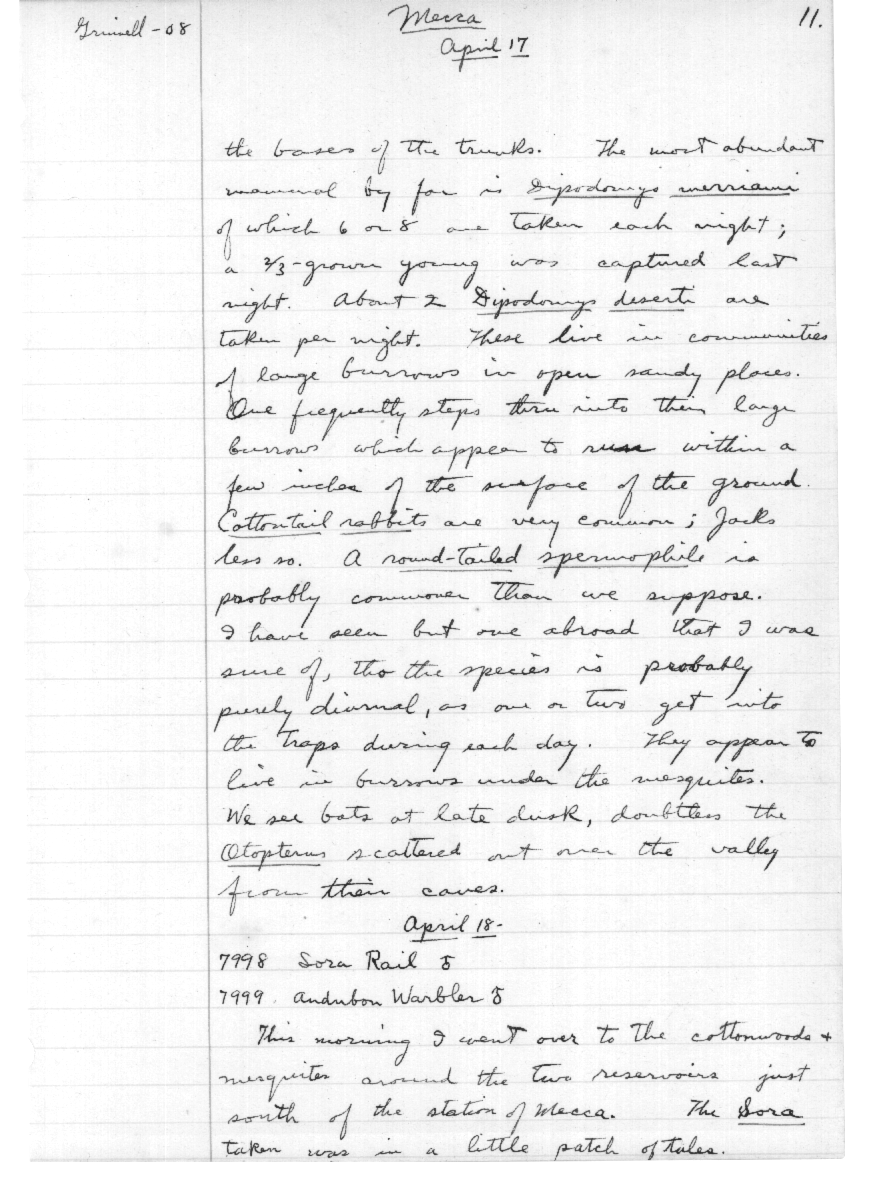 Grinnell - 08
Mecca
11.
April 17
the bases of the trunks. The most abundant
mammal by far is Dipodomys merriami
of which 6 or 8 are taken each night;
a 2/3-grown young was captured last
night. About 2 Dipodomys deserti are
taken per night. These live in communities
of large burrows in open sandy places.
One frequently steps thru into their large
burrows which appear to run within a
few inches of the surface of the ground.
Cottontail rabbits are very common; Jacks
less so. A round-tailed spermophile is
probably commoner than we suppose.
I have seen but one abroad that I was
sure of, tho the species is probably
purely diurnal, as one or two get into
the traps during each day. They appear to
live in burrows under the mesquites.
We see bats at late dusk, doubtless the
Otopterus scattered out over the valley
from their caves.
April 18-
7998 Sora Rail
7999. Audubon Warbler
This morning I went over to the cottonwoods +
mesquites around the two reservoirs just
south of the station of Mecca. The Sora
taken was in a little patch of tules.